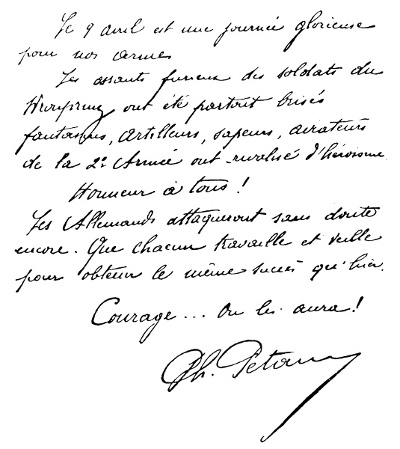 Le 9 avril est une journée glorieuse
pour nos armes
Les assauts furieux des soldats du
Kronprinz ont été partout brisés
fantassins, artilleurs, sapeurs, aviateurs
de la 2e Armée ont rivalisé d'héroïsme.
Honneur à tous !
Les Allemands attaqueront sans doute
encore. Que chacun travaille et veille
pour obtenir le même succès qu'hier.
Courage... On les aura !
Ph. Pétain